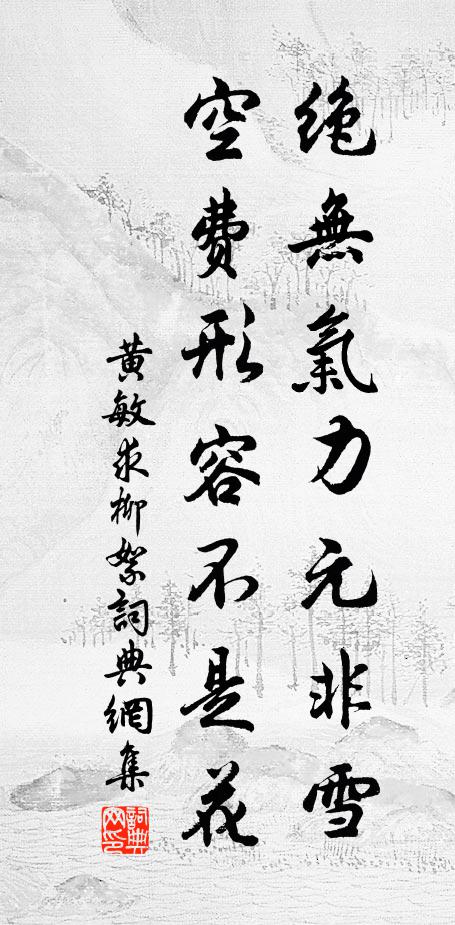 绝無氣力元非雪
空費形容不是花
黄敏求柳絮詞典網集
詞典網印